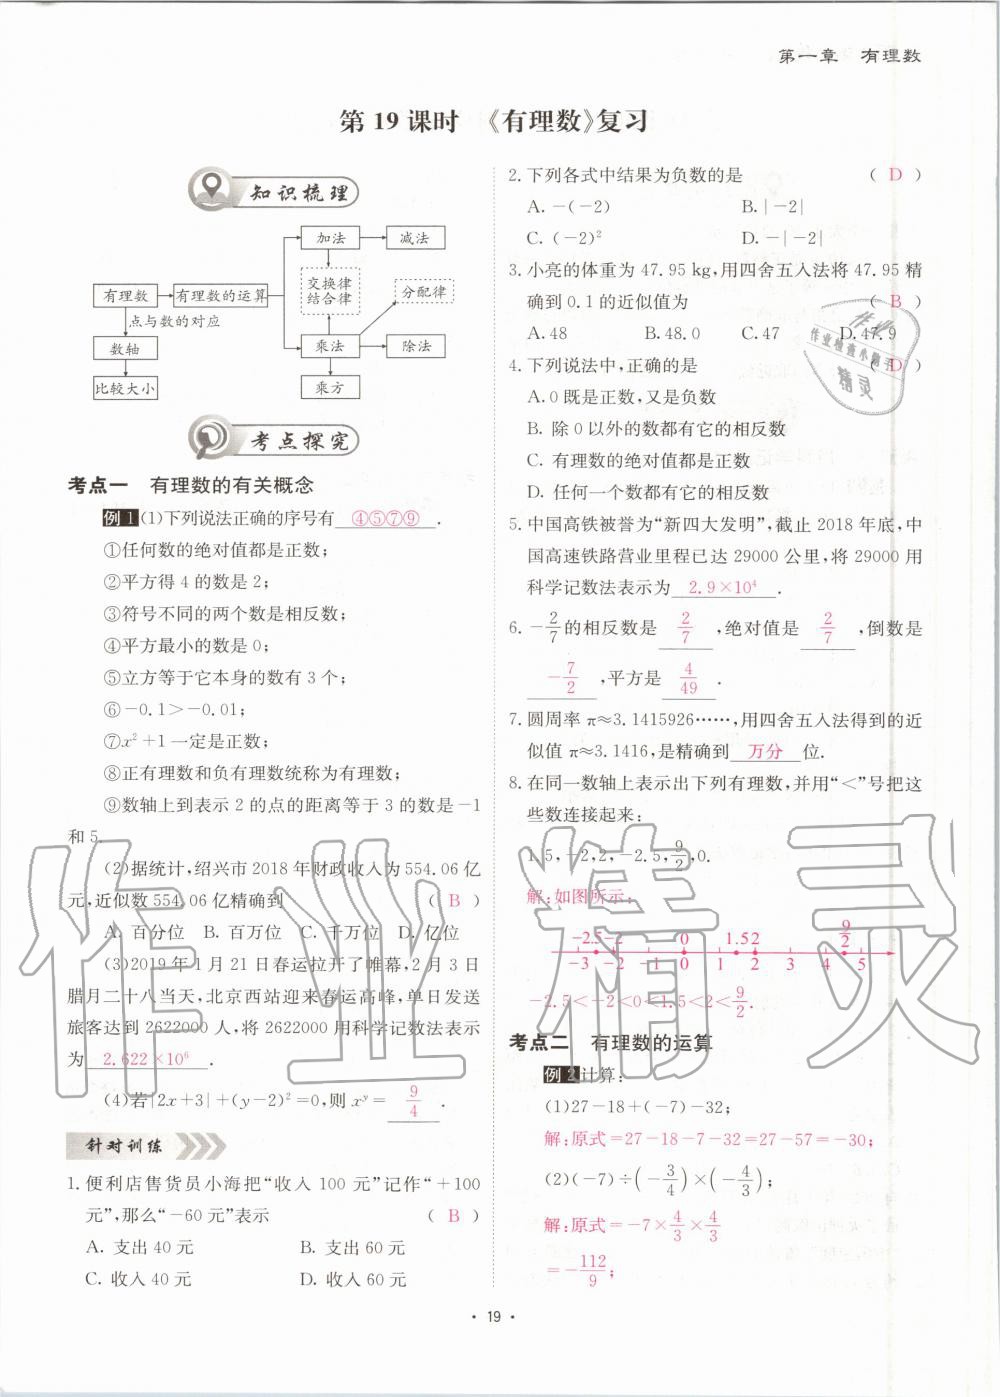 第一章 有理数
第 19 课时 《有理数》复习
知识梳理
加法 减法
交换律
结合律
分配律
有理数 有理数的运算
点与数的对应
数轴 乘法 除法
比较大小 乘方
考点探究
考点一 有理数的有关概念
例 1 (1)下列说法正确的序号有 ④⑤⑦⑨ .
①任何数的绝对值都是正数;
②平方得 4 的数是 2;
③符号不同的两个数是相反数;
④平方最小的数是 0;
⑤立方等于它本身的数有 3 个;
⑥-0.1>-0.01;
⑦x²+1 一定是正数;
⑧正有理数和负有理数统称为有理数;
⑨数轴上到表示 2 的点的距离等于 3 的数是 -1
和 5.
(2)据统计,绍兴市 2018 年财政收入为 554.06 亿
元,近似数 554.06 亿精确到 ( B )
A. 百分位 B. 百万位 C. 千万位 D. 亿位
(3)2019 年 1 月 21 日春运拉开了帷幕,2 月 3 日
腊月二十八当天,北京西站迎来春运高峰,单日发送
旅客达到 2622000 人,将 2622000 用科学记数法表示
为 2.622×10⁶ .
(4)若|2x+3|+(y-2)²=0,则 xʸ= 9/4 .
针对训练
1. 便利店售货员小海把“收入 100 元”记作“+100
元”,那么“-60 元”表示 ( B )
A. 支出 40 元 B. 支出 60 元
C. 收入 40 元 D. 收入 60 元
2. 下列各式中结果为负数的是 ( D )
A. -(-2) B. |-2|
C. (-2)² D. -|-2|
3. 小亮的体重为 47.95 kg,用四舍五入法将 47.95 精
确到 0.1 的近似值为 ( B )
A. 48 B. 48.0 C. 47 D. 47.9
4. 下列说法中,正确的是 ( D )
A. 0 既是正数,又是负数
B. 除 0 以外的数都有它的相反数
C. 有理数的绝对值都是正数
D. 任何一个数都有它的相反数
5. 中国高铁被誉为“新四大发明”,截止 2018 年底,中
国高速铁路营业里程已达 29000 公里,将 29000 用
科学记数法表示为 2.9×10⁴ .
6. -2/7的相反数是 2/7 ,绝对值是 2/7 ,倒数是
-7/2 ,平方是 4/49 .
7. 圆周率 π≈3.1415926……,用四舍五入法得到的近
似值 π≈3.1416,是精确到 万分 位.
8. 在同一数轴上表示出下列有理数,并用“<”号把这
些数连接起来:
1.5,-2,2,-2.5,9/2,0.
解:如图所示:
-2.5 -2 0 1.5 2 9/2
-3 -2 -1 0 1 2 3 4 5
-2.5<-2<0<1.5<2<9/2.
考点二 有理数的运算
例 2 计算:
(1)27-18+(-7)-32;
解:原式=27-18-7-32=27-57=-30;
(2)(-7)÷(-3/4)×(-4/3);
解:原式=-7×4/3×4/3
=-112/9;
· 19 ·
作业
作业检查小助手
精灵
作业精灵